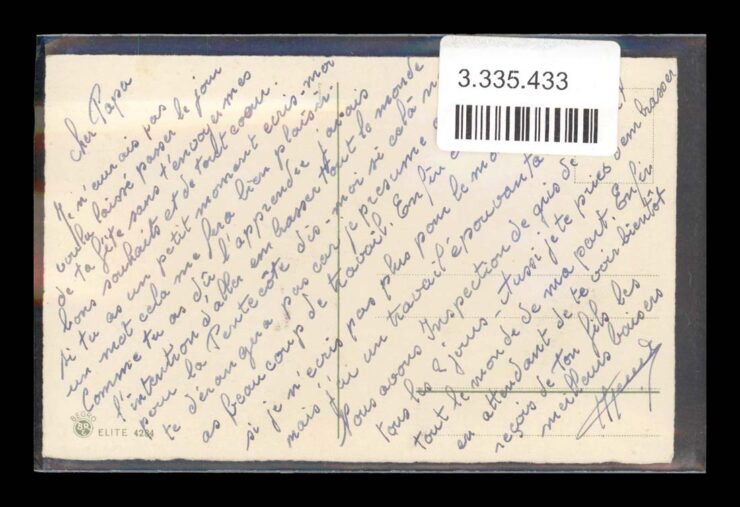 Cher Papa
Je n'aurais pas
voulu laissé passer le jour
de ta fête sans t'envoyer mes
bons souhaits et de tout coeur.
Si tu as un petit moment ecris-moi
un mot cela me fera bien plaisir.
Comme tu as dû l'apprendre j'avais
l'intention d'aller embrasser tout le monde
pour la Pentecôte dis-moi si celà
te dérangera pas car je présume
as beaucoup de travail. Enfin
si je n'écris pas plus pour le
mais j'ai un travail
Nous avons Inspection de de
tous les 2 jours - Aussi je te d'embrasser
tout le monde de ma part. Enfin
en attendant de te voir bientôt
reçois de ton fils les
meilleurs baisers
3.335.433
BEGRO
BR
ELITE 4284